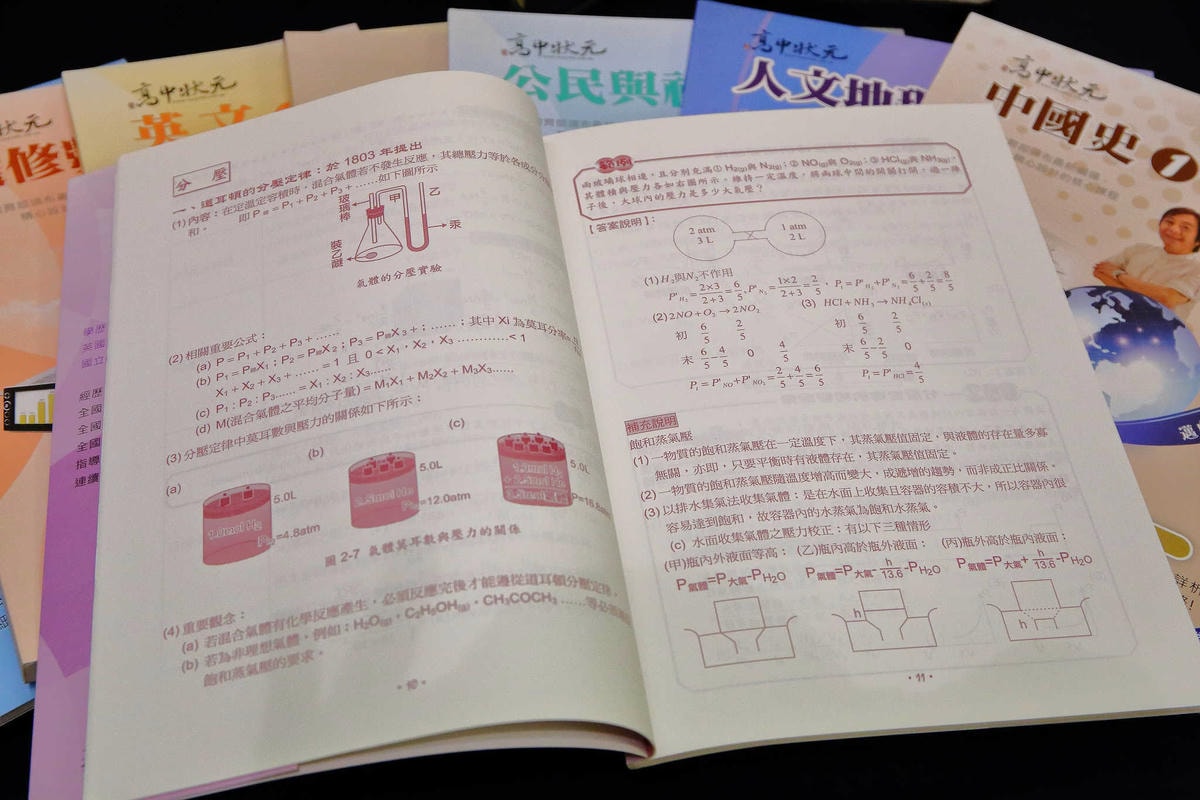 狀元
修
高中狀元
英文
高中狀元
公民與社
高中狀元
人文地理
高中狀元
中國史 1
學歷
英國
國立
經歷
全國
全國
全國
指導
連續
分 壓
一、道耳頓的分壓定律：於 1803 年提出
(1)內容：在定溫定容積時，混合氣體若不發生反應，其總壓力等於各成分
和。 即P總＝P₁＋P₂＋P₃＋……如下圖所示
玻璃棒
甲
乙
汞
裝乙醚
氣體的分壓實驗
(2)相關重要公式：
(a) P＝P₁＋P₂＋P₃＋……
(b) P₁＝P總X₁；P₂＝P總X₂；P₃＝P總X₃＋；……；其中 Xi 為莫耳分率
X₁＋X₂＋X₃＋……＝1 且 0＜X₁，X₂，X₃…………＜1
(c) P₁:P₂:P₃……＝X₁:X₂:X₃……
(d) M(混合氣體之平均分子量)＝M₁X₁＋M₂X₂＋M₃X₃……
(3)分壓定律中莫耳數與壓力的關係如下所示：
(a)
5.0L
1.0mol H₂
=4.8atm
(b)
5.0L
2.5mol He
=12.0atm
(c)
5.0L
圖 2-7 氣體莫耳數與壓力的關係
(4)重要觀念：
(a) 若混合氣體有化學反應產生，必須反應完後才能遵從道耳頓分壓定律。
(b) 若為非理想氣體，例如：H₂O(g)，C₂H₅OH(g)，CH₃COCH₃……等必須
飽和蒸氣壓的要求。
·10·
範例
兩玻璃球相連，且分別充滿① H₂(g)與 N₂(g)；② NO(g)與 O₂(g)；③ HCl(g)與 NH₃(g)，
其體積與壓力各如右圖所示。維持一定溫度，將兩球中間的開關打開，過一陣
子後，大球內的壓力是多少大氣壓？
【答案說明】：
2 atm 3 L
1 atm 2 L
(1) H₂與N₂不作用
P'H₂=2×3/2+3=6/5，P'N₂=1×2/2+3=2/5，Pt=P'H₂+P'N₂=6/5+2/5=8/5
(2) 2NO+O₂→2NO₂ (3) HCl+NH₃→NH₄Cl(s)
初 6/5 2/5 初 6/5 2/5
末 6/5-4/5 0 4/5 末 6/5-2/5 0
Pt=P'NO+P'NO₂=2/5+4/5=6/5 Pt=P'HCl=4/5
補充說明
飽和蒸氣壓
(1)一物質的飽和蒸氣壓在一定溫度下，其蒸氣壓值固定，與液體的存在量多寡
無關，亦即，只要平衡時有液體存在，其蒸氣壓值固定。
(2)一物質的飽和蒸氣壓隨溫度增高而變大，成遞增的趨勢，而非成正比關係。
(3)以排水集氣法收集氣體：是在水面上收集且容器的容積不大，所以容器內很
容易達到飽和，故容器內的水蒸氣為飽和水蒸氣。
(c) 水面收集氣體之壓力校正：有以下三種情形
(甲)瓶內外液面等高； (乙)瓶內高於瓶外液面； (丙)瓶外高於瓶內液面；
P氣體=P大氣-PH₂O P氣體=P大氣-h/13.6-PH₂O P氣體=P大氣+h/13.6-PH₂O
h
h
·11·